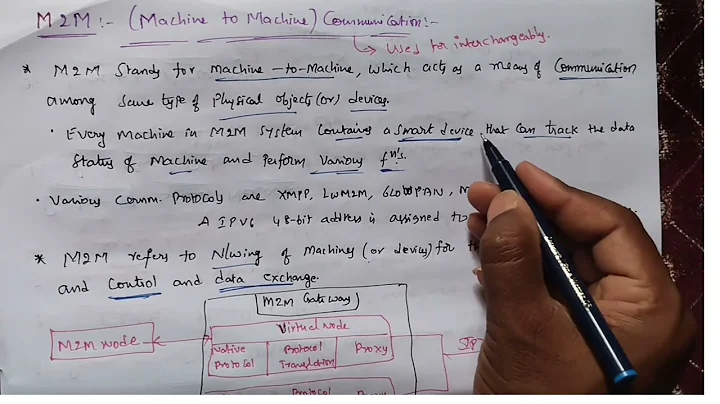 M2M :- (Machine to Machine) Communication :-
→ Used for interchangeably.
* M2M Stands for Machine-to-Machine, which acts as a means of Communication
among same type of Physical objects (or) devices.
• Every Machine in M2M System Contains a smart device that can track the data
Status of Machine and Perform Various fn's.
• Various Comm. Protocols are XMPP, LWM2M, 6LOWPAN, M
A IPV6 48-bit address is assigned to
* M2M refers to N/wing of Machines (or devices) for the
and Control and data exchange.
M2M Gateway
Virtual Node
M2M Node
Native Protocol
Protocol Translation
Proxy
Protocol
Proxy